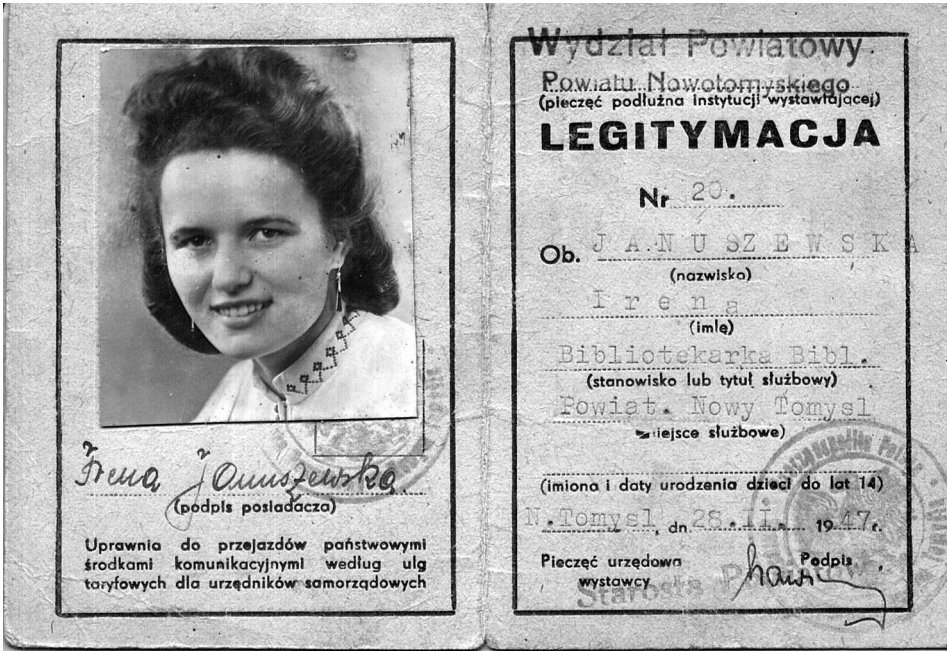 Irena Januszewska
(podpis posiadacza)
Uprawnia do przejazdów państwowymi
środkami komunikacyjnymi według ulg
taryfowych dla urzędników samorządowych
Wydział Powiatowy
Powiatu Nowotomyskiego
(pieczęć podłużna instytucji wystawiającej)
LEGITYMACJA
Nr 20.
Ob. JANUSZEWSKA
(nazwisko)
Irena
(imię)
Bibliotekarka Bibl.
(stanowisko lub tytuł służbowy)
Powiat. Nowy Tomysl
miejsce służbowe)
(imiona i daty urodzenia dzieci do lat 14)
N.Tomysl, dn. 28.II. 1947r.
Pieczęć urzędowa Podpis
wystawcy
Starosta